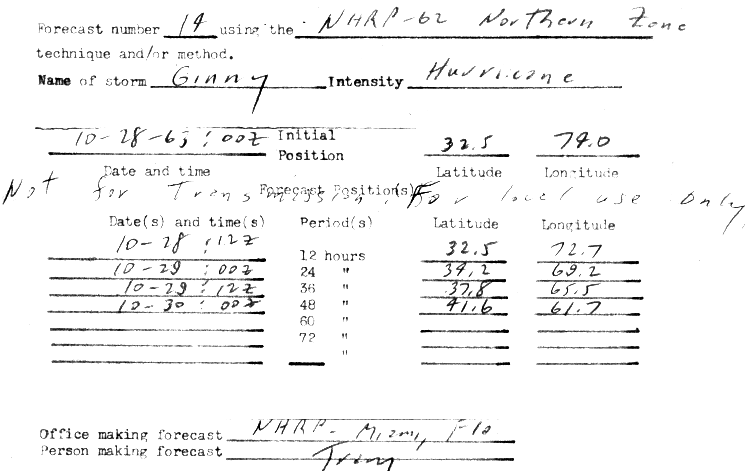 Forecast number 14 using the NHRP-62 Northern Zone
technique and/or method.
Name of storm Ginny Intensity Hurricane
10-28-63 : 00Z Initial Position 32.5 74.0
Date and time Latitude Longitude
Forecast Position(s)
Not for Transmission. For local use only.
Date(s) and time(s) Period(s) Latitude Longitude
10-28 : 12Z 12 hours 32.5 72.7
10-29 : 00Z 24 " 34.2 69.2
10-29 : 12Z 36 " 37.8 65.5
10-30 : 00Z 48 " 41.6 61.7
60 "
72 "
"
Office making forecast NHRP- Miami, Fla
Person making forecast